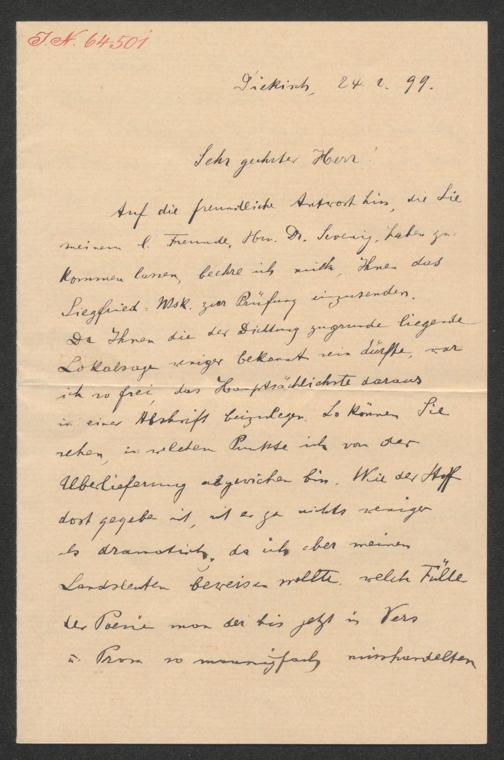 J. N. 64501
Diekirch, 24. 2. 99.
Sehr geehrter Herr!
Auf die freundliche Antwort hin, die Sie
meinem l. Freunde, Hrn. Dr. haben zu-
kommen lassen, beehre ich mich, Ihnen das
Siegfried-Msk. zur Prüfung einzusenden.
Da Ihnen die der Dichtung zugrunde liegende
Lokalsage weniger bekannt sein dürfte, war
ich so frei, das Hauptsächlichste daraus
in einer Abschrift beizulegen. So können Sie
sehen, in welchem Punkte ich von der
Überlieferung abgewichen bin. Wie der Stoff
dort gegeben ist, ist er ja nichts weniger
als dramatisch, da ich aber meinen
Landsleuten beweisen wollte, welch Fülle
der Poesie man der bis jetzt in Vers
u. Prosa so mannigfach misshandelten